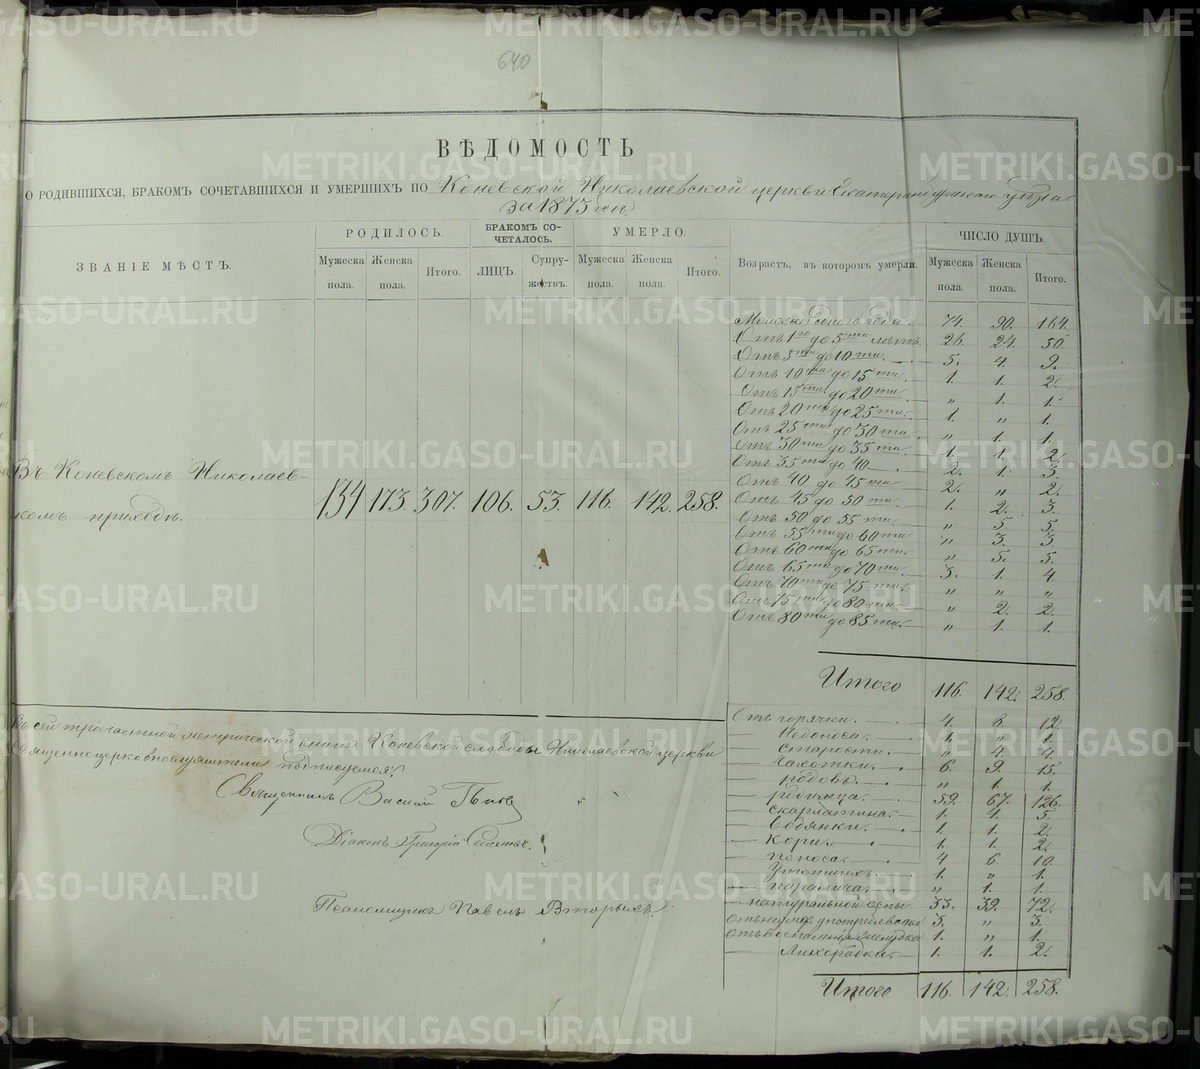 640
ВѢДОМОСТЬ
О РОДИВШИХСЯ, БРАКОМЪ СОЧЕТАВШИХСЯ И УМЕРШИХЪ ПО Коневской Николаевской церкви Екатеринбургскаго уѣзда
за 1875 годъ.
ЗВАНІЕ МѢСТЪ. РОДИЛОСЬ. БРАКОМЪ СО-ЧЕТАЛОСЬ. УМЕРЛО. Возрастъ, въ которомъ умерли. ЧИСЛО ДУШЪ.
Мужеска пола. Женска пола. Итого. ЛИЦЪ. Супру-жествъ. Мужеска пола. Женска пола. Итого. Мужеска пола. Женска пола. Итого.
Въ Коневскомъ Николаев-
комъ приходѣ. 134 173 307. 106. 53. 116. 142. 258.
Моложе одного года. 74. 90. 164.
Отъ 1го до 5ти лѣтъ. 26. 24. 50.
Отъ 5ти до 10ти. 5. 4. 9.
Отъ 10ти до 15ти. 1. 1. 2.
Отъ 15ти до 20ти. „ 1. 1.
Отъ 20ти до 25ти. 1. „ 1.
Отъ 25ти до 30ти. „ 1. 1.
Отъ 30ти до 35ти. 1. 1. 2.
Отъ 35ти до 40. 2. 1. 3.
Отъ 40 до 45ти. 2. „ 2.
Отъ 45 до 50ти. 1. 2. 3.
Отъ 50 до 55ти. „ 5. 5.
Отъ 55ти до 60ти „ 3. 3.
Отъ 60ти до 65ти. „ 5. 5.
Отъ 65ти до 70ти. 3. 1. 4
Отъ 70ти до 75ти. „ „ „
Отъ 75ти до 80ти „ 2. 2.
Отъ 80ти до 85ти. „ 1. 1.
Итого 116. 142. 258.
Къ сей троечастной метрической книгѣ Коневской слободы Николаевской церкви
Священноцерковнослужители подписуемся:
Священникъ Василій
Діаконъ Григорій
Псаломщикъ Павелъ Вторыхъ.
Отъ горячки. 4. 8. 12.
— Недоноса. 1. „ 1.
— Старости. „ 4. 4.
— Чахотки. 6. 9. 15.
— родовъ. „ 1. 1.
— родимца. 59. 67. 126.
— скарлатина. 1. 4. 5.
— водянки. 1. 1. 2.
— Кори. 1. 1. 2.
— поноса. 4 6. 10.
— Утопшихъ. 1. „ 1.
— паралича. „ 1. 1.
— натуральной оспы 33. 39. 72.
3. „ 3.
Отъ воспаленія желудка 1. „ 1.
— Лихорадка. 1. 1. 2.
Итого 116. 142. 258.
METRIKI.GASO-URAL.RU